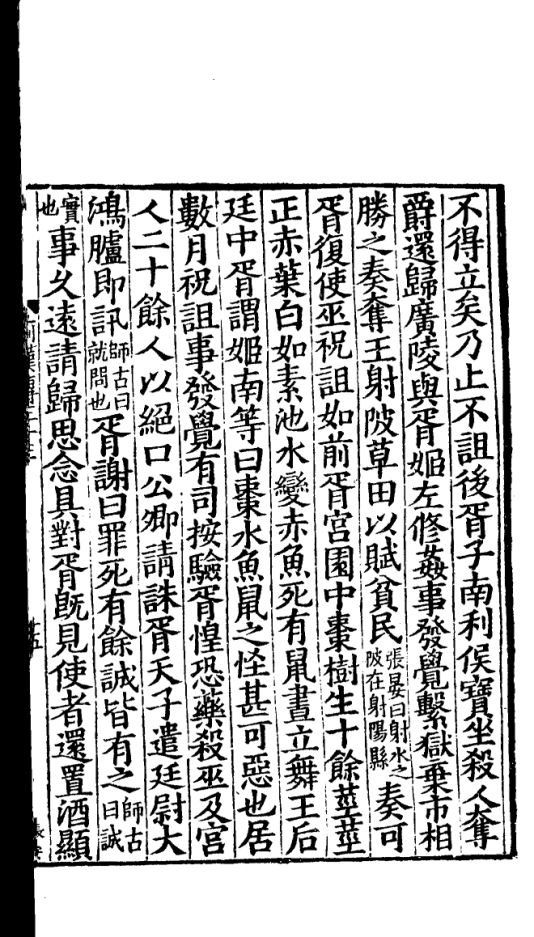 不得立矣乃止不詛後胥子南利侯寶坐殺人奪
爵還歸廣陵與胥姬左修姦事發覺繫獄棄市相
勝之奏奪王射陂草田以賦貧民張晏曰射水之陂在射陽縣奏可
胥復使巫祝詛如前胥宮園中棗樹生十餘莖莖
正赤葉白如素池水變赤魚死有鼠晝立舞王后
廷中胥謂姬南等曰棗水魚鼠之怪甚可惡也居
數月祝詛事發覺有司按驗胥惶恐藥殺巫及宮
人二十餘人以絕口公卿請誅胥天子遣廷尉大
鴻臚即訊師古曰就問也胥謝曰罪死有餘誠皆有之師古曰誠
實也事久遠請歸思念具對胥旣見使者還置酒顯
十五